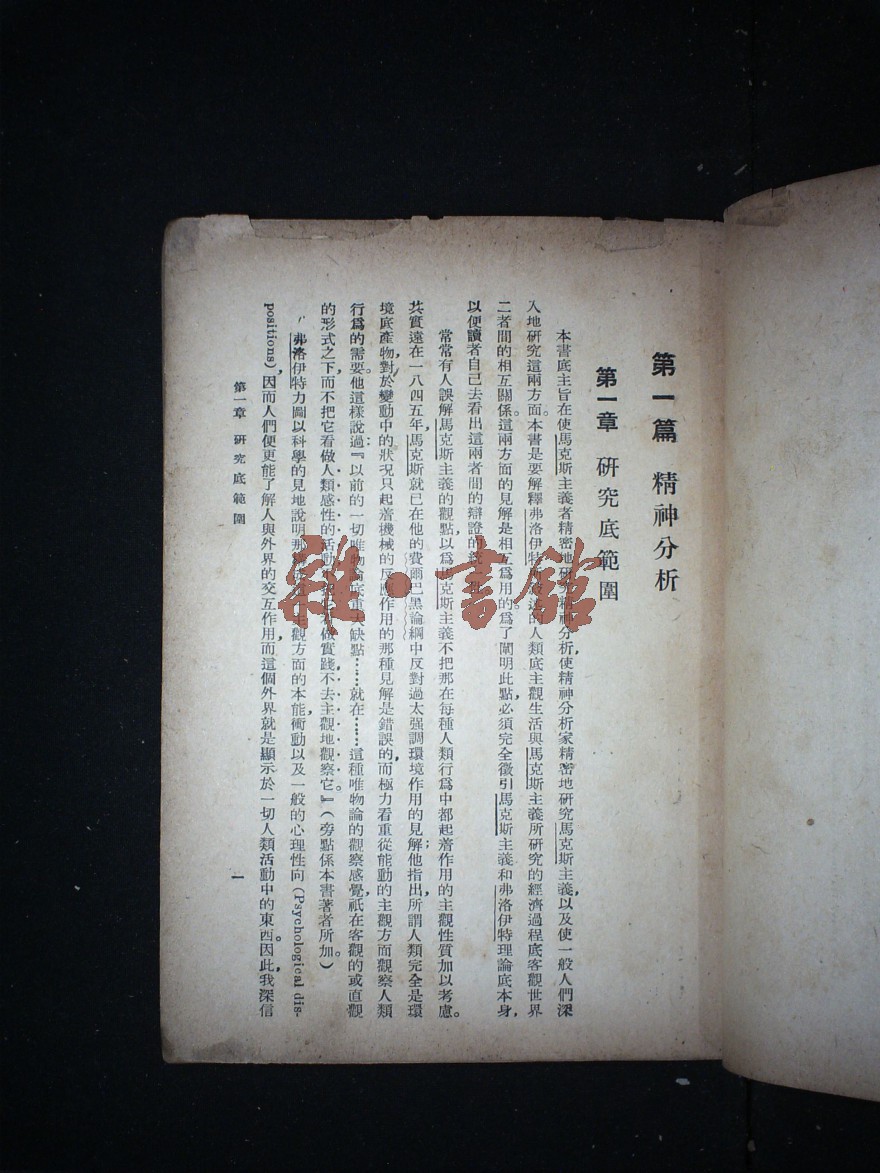 第一篇 精神分析
第一章 研究底範圍
本書底主旨在使馬克斯主義者精密地研究精神分析,使精神分析家精密地研究馬克斯主義,以及使一般人們深
入地研究這兩方面。本書是要解釋弗洛伊特所敘述的人類底主觀生活與馬克斯主義所研究的經濟過程底客觀世界
二者間的相互關係。這兩方面的見解是相互爲用的。爲了闡明此點,必須完全徵引馬克斯主義和弗洛伊特理論底本身,
以便讀者自己去看出這兩者間的辯證的統
常常有人誤解馬克斯主義的觀點,以爲馬克斯主義不把那在每種人類行爲中都起着作用的主觀性質加以考慮。
其實遠在一八四五年,馬克斯就已在他的費爾巴黑論綱中反對過太强調環境作用的見解;他指出,所謂人類完全是環
境底產物,對於變動中的狀况只起着機械的反應作用的那種見解是錯誤的,而極力看重從能動的主觀方面觀察人類
行爲的需要。他這樣說過:『以前的一切唯物論底重大缺點……就在……這種唯物論的觀察感覺,祇在客觀的或直觀
的形式之下,而不把它看做人類感性的活動 做實踐,不去主觀地觀察它。』(旁點係本書著者所加。)
弗洛伊特力圖以科學的見地說明那 主觀方面的本能衝動以及一般的心理性向(Psychological dis-
positions),因而人們便更能了解人與外界的交互作用,而這個外界就是顯示於一切人類活動中的東西。因此,我深信
第一章 研究底範圍
一
雜·書館